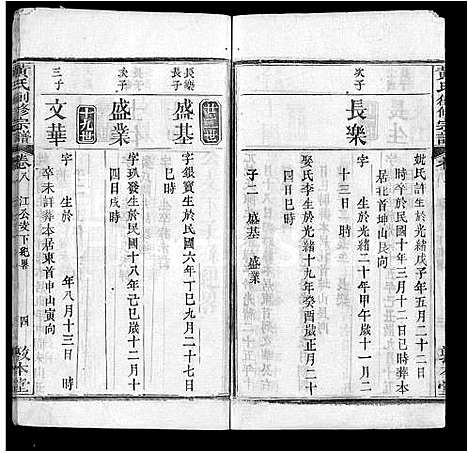 黄氏創修宗譜
妣氏許生於光緒戊子年五月二十二日
時卒於民國十年三月十二日巳時葬本
居北首坤山艮向
次子
長樂
字 生於光緒二十年甲午歲十一月二
十三日 時
娶氏李生於光緒十九年癸酉歲正月二十
日 時
子二 盛基 盛業
敦本堂
黄氏創修宗譜
卷八
江公支下紀畧
四
敦本堂
廿世
長樂長子
盛基
字銀寶生於民國六年丁巳九月二十七日
巳時
次子
盛業
字 生於民國十八年己巳歲十二月十
四日戌時
十九世
三子
文華
字 生於 年八月十三日 時
卒未詳葬本居東首申山寅向